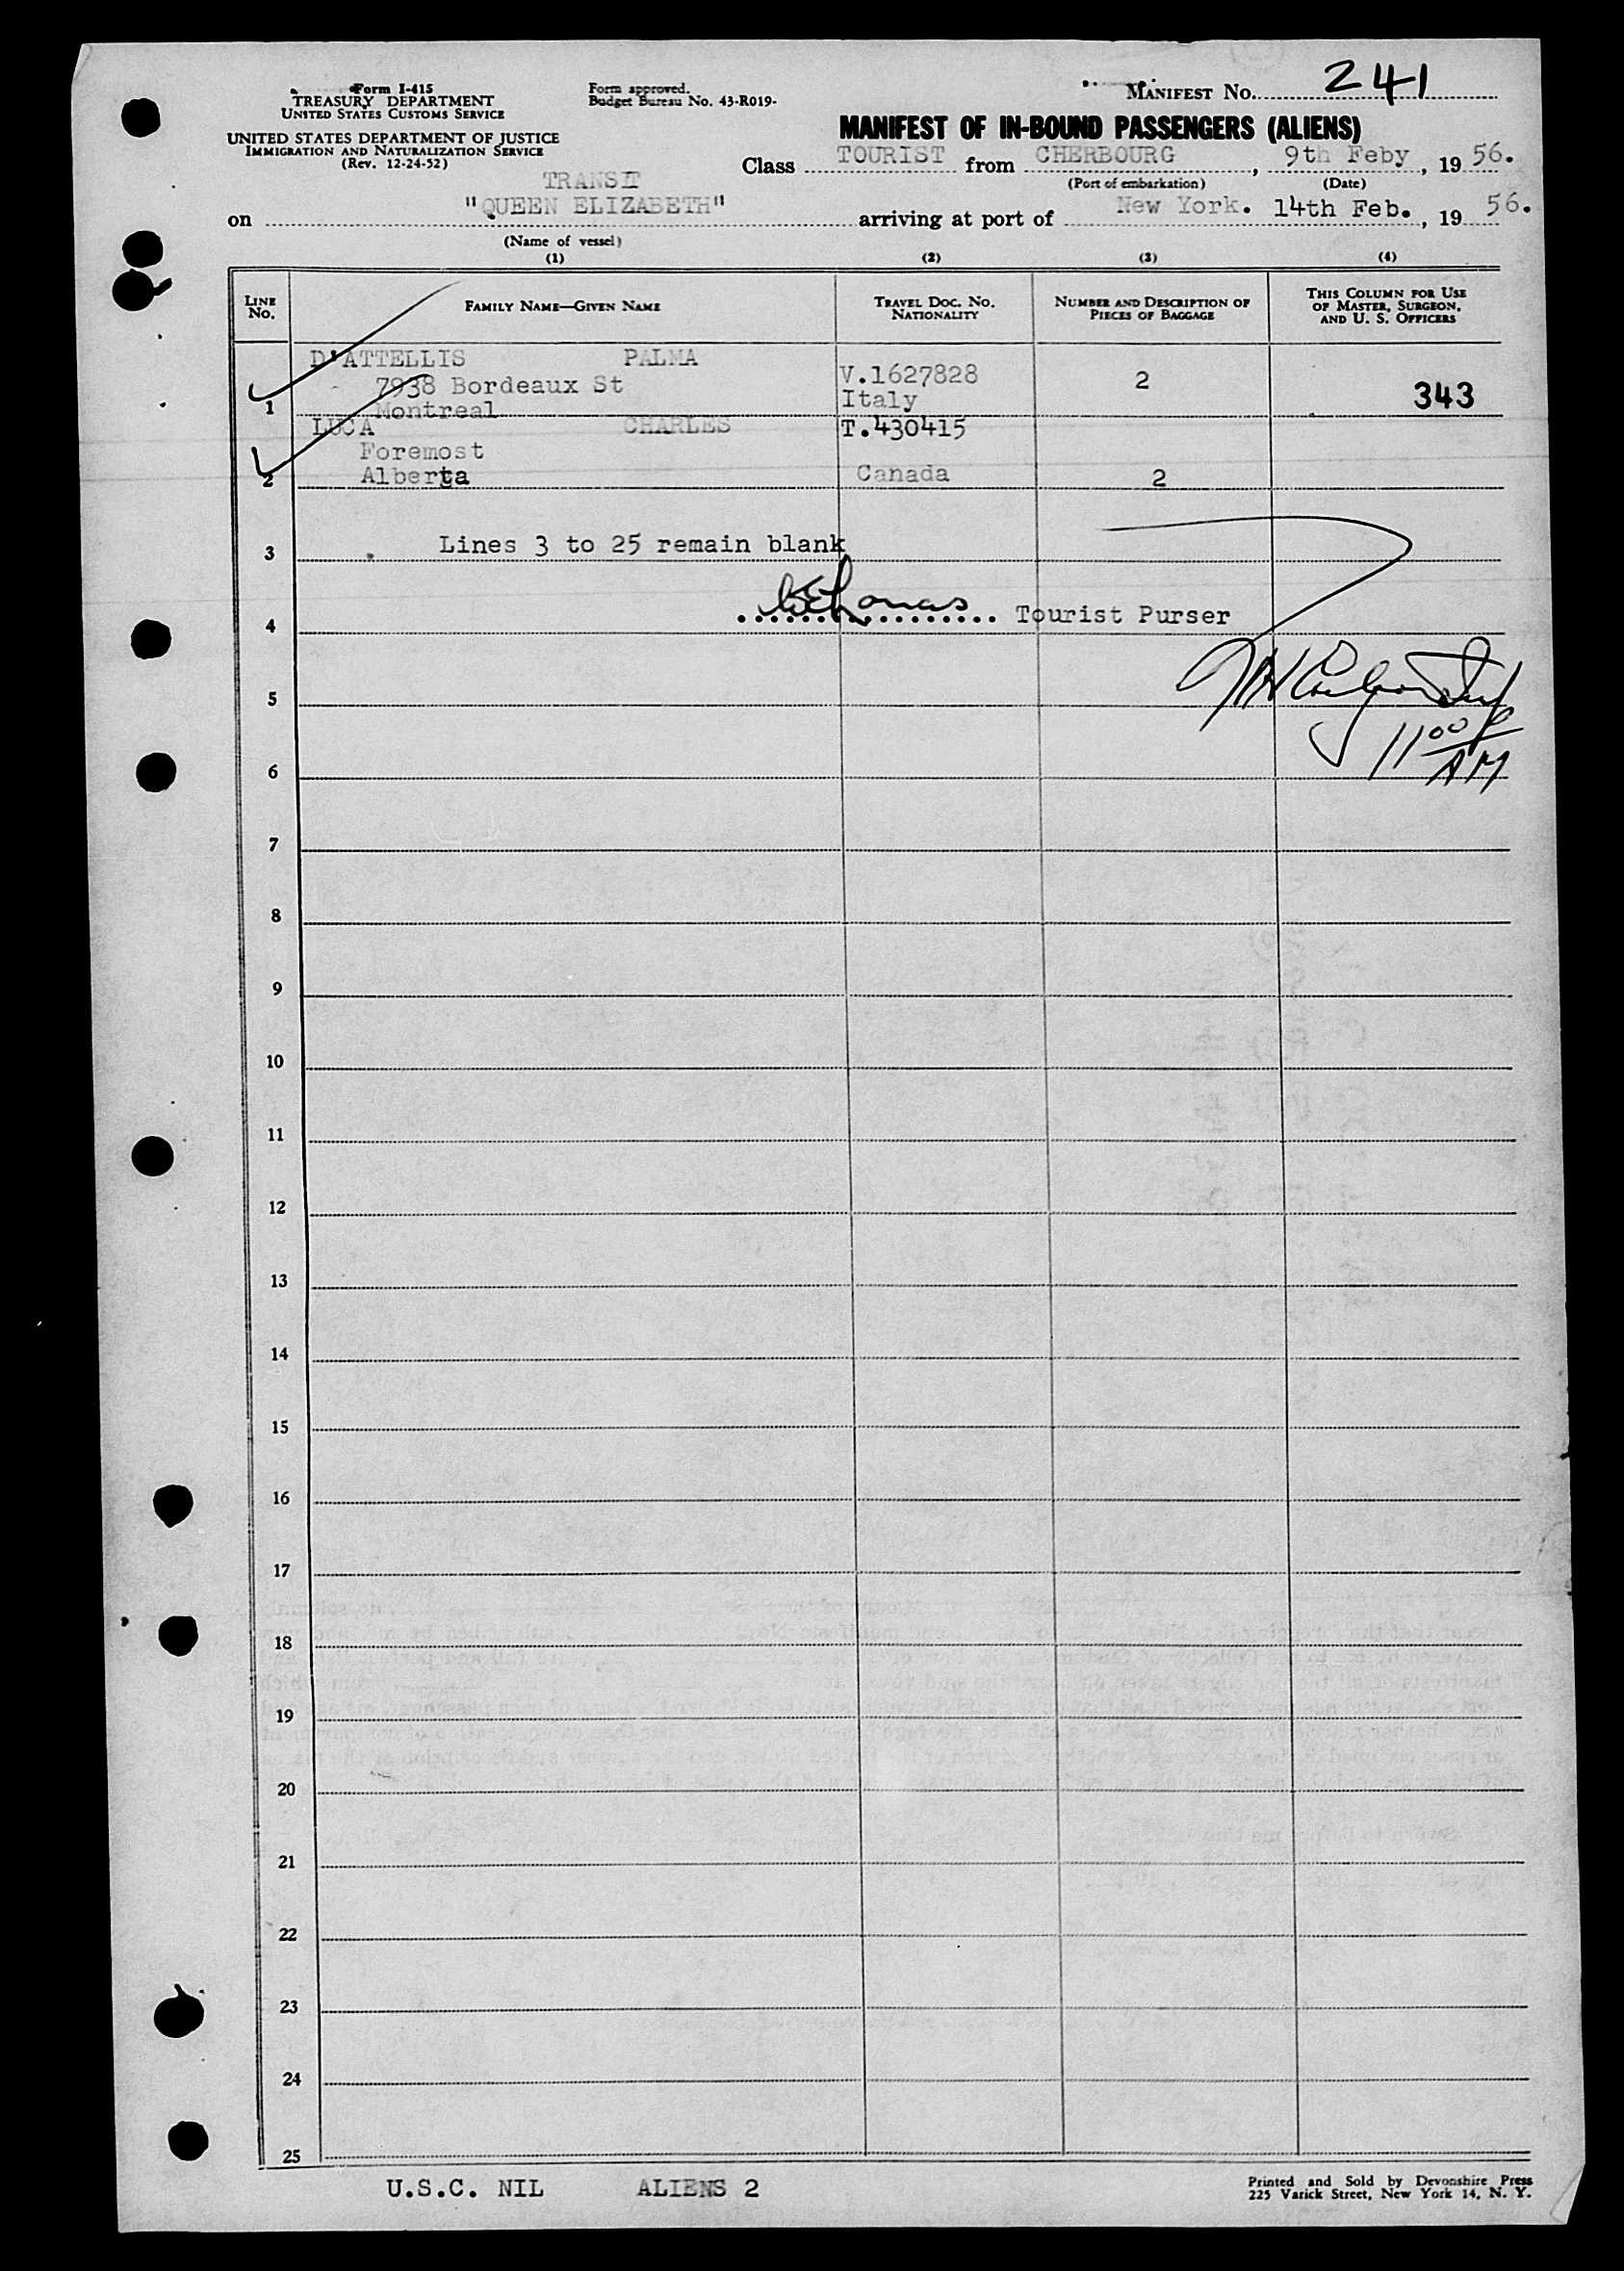 Form I-415
TREASURY DEPARTMENT
UNITED STATES CUSTOMS SERVICE
UNITED STATES DEPARTMENT OF JUSTICE
IMMIGRATION AND NATURALIZATION SERVICE
(Rev. 12-24-52)
Form approved.
Budget Bureau No. 43-R019-
MANIFEST No. 241
MANIFEST OF IN-BOUND PASSENGERS (ALIENS)
Class TOURIST from CHERBOURG, 9th Feby, 19 56.
(Port of embarkation) (Date)
TRANSIT
on "QUEEN ELIZABETH" arriving at port of New York. 14th Feb., 19 56.
(Name of vessel)
(1) (2) (3) (4)
LINE No. FAMILY NAME—GIVEN NAME TRAVEL DOC. No. NATIONALITY NUMBER AND DESCRIPTION OF PIECES OF BAGGAGE THIS COLUMN FOR USE OF MASTER, SURGEON, AND U. S. OFFICERS
D'ATTELLIS PALMA
7938 Bordeaux St V.1627828 2
1 Montreal Italy 343
LUCA CHARLES T.430415
Foremost
2 Alberta Canada 2
3 Lines 3 to 25 remain blank
4 Tourist Purser
5
11 00
AM
6
7
8
9
10
11
12
13
14
15
16
17
18
19
20
21
22
23
24
25
U.S.C. NIL ALIENS 2
Printed and Sold by Devonshire Press
225 Varick Street, New York 14, N. Y.